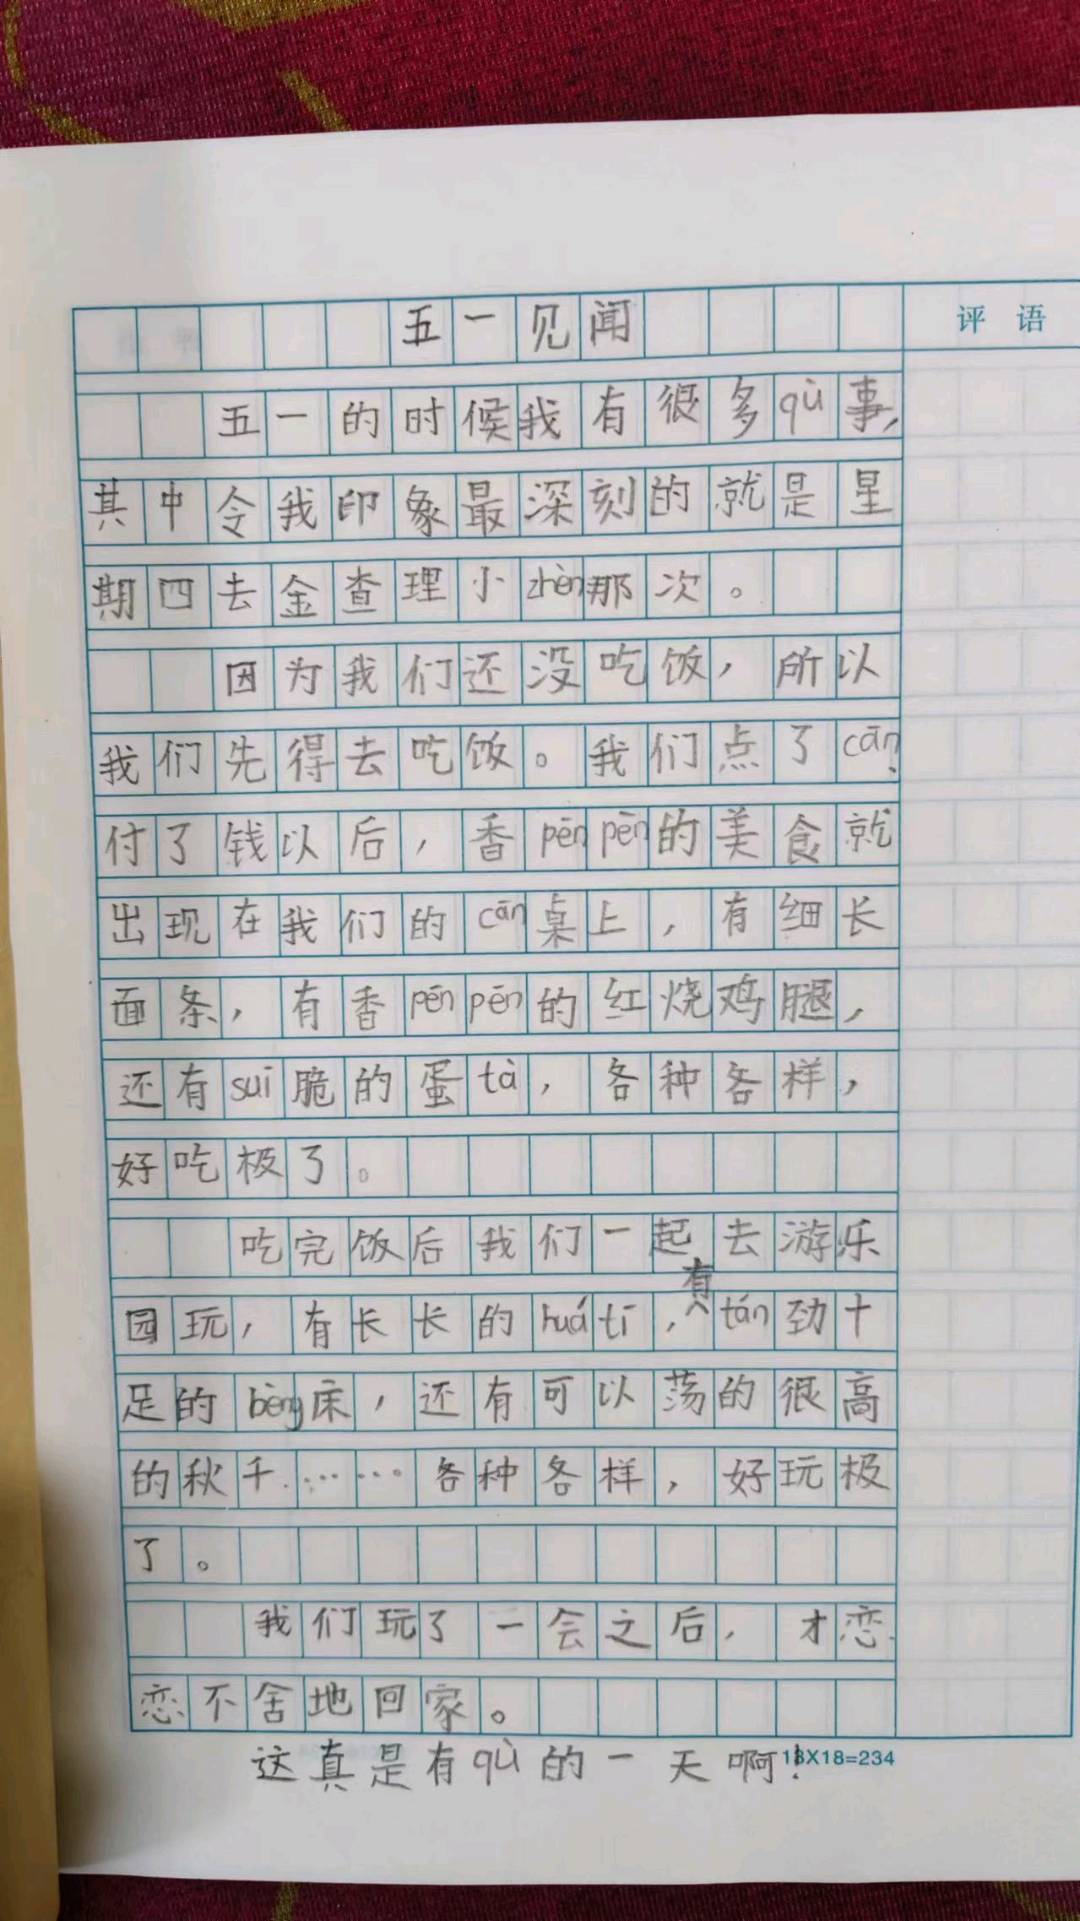 五一见闻
评语
五一的时候我有很多qù事,
其中令我印象最深刻的就是星
期四去金查理小zhèn那次。
因为我们还没吃饭，所以
我们先得去吃饭。我们点了cān,
付了钱以后，香pēnpēn的美食就
出现在我们的cān桌上，有细长
面条，有香pēnpēn的红烧鸡腿，
还有suī脆的蛋tà，各种各样，
好吃极了。
吃完饭后我们一起去游乐
园玩，有长长的huátī，有tán劲十
足的bèng床，还有可以荡的很高
的秋千……各种各样，好玩极
了。
我们玩了一会之后，才恋
恋不舍地回家。
这真是有qù的一天啊！
18X18=234